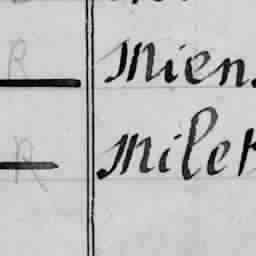 R Mien
R Milet